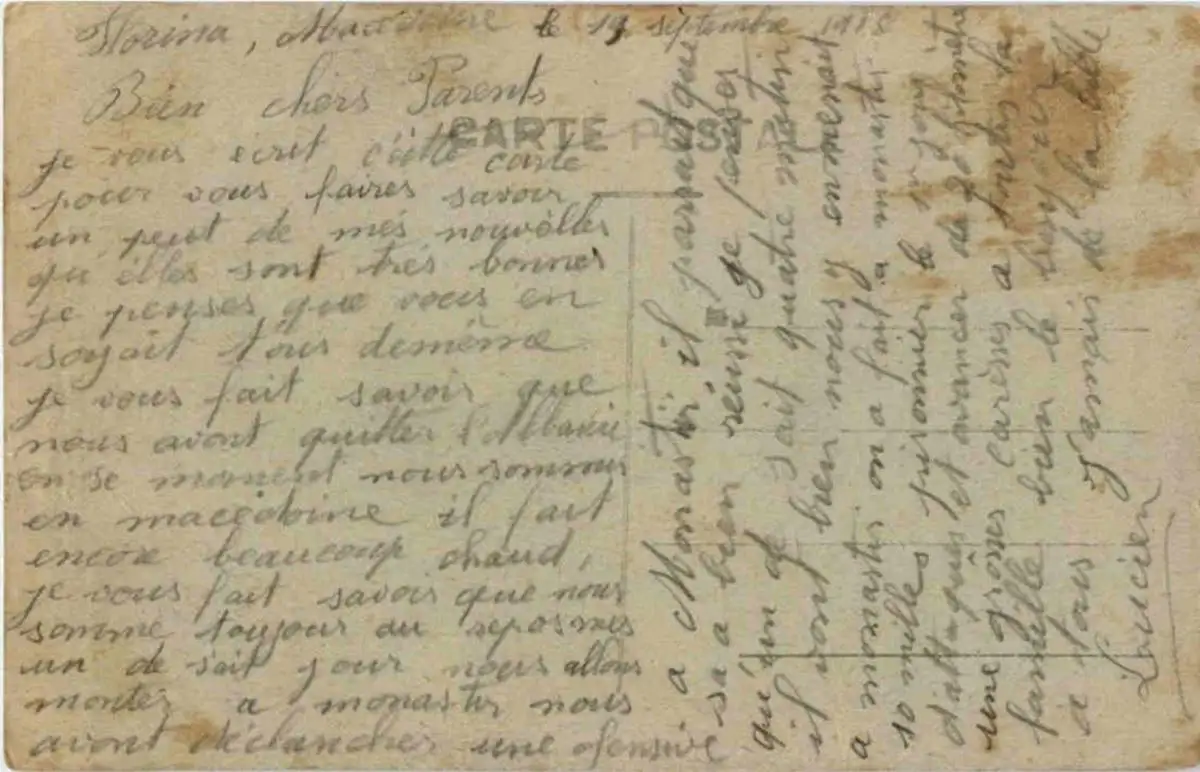 Florina, Macédoine le 19 septembre 1918
Bien chers Parents
CARTE POSTAL
je vous ecrit c'ette carte
pour vous faires savoir
un peut de mes nouvélles
qu'élles sont trés bonnes
je penses que vous en
soyait tous demême
je vous fait savoir que
nous avont quitter l'Albanie
en se moment nous sommes
en macédoine il fait
encore beaucoup chaud,
je vous fait savoir que nous
somme toujour au repos mes
un de sait jour nous allons
monter a monastir nous
avont déclancher une ofensive
a Monastir il parrait que
sa a bien réussi je penser
qu'un de sait quatre matin
il vont bien nous y enmenait
a monastir on a fait a monastir
10 milles prisonnier le
d'attaques et avancer de 20 kilmètre
une grôsses caresses a toutes la
famille bien le bonjour
a tous Jamais de la
Lucien